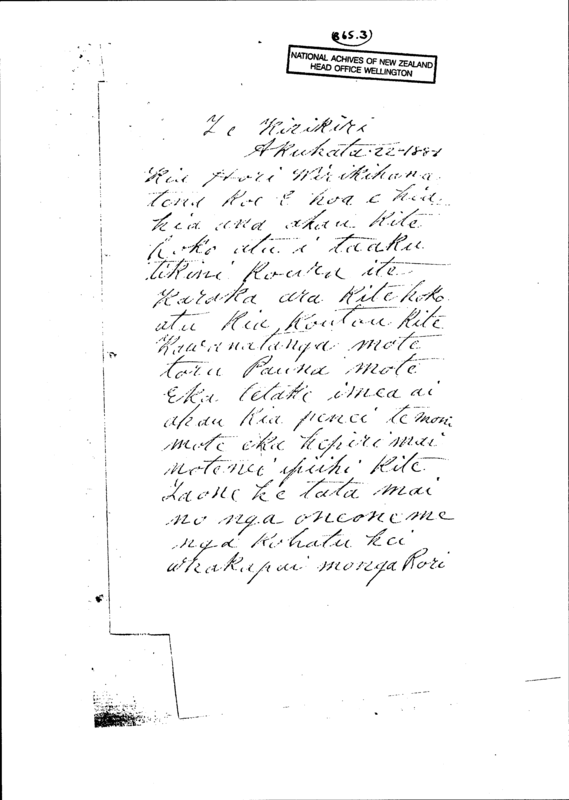 (365.3)
NATIONAL ACHIVES OF NEW ZEALAND
HEAD OFFICE WELLINGTON
Te Kirikiri
Akuhata 22-1881
Kia Hori Wirikihana
tena koe E hoa e hia
hia ana ahau kite
hoko atu i taaku
ite
Karaka ara kite hoko
atu kia koutou kite
Kawanatanga mote
toru Pauna mote
Eka tetake imea ai
ahau kia penei te moni
mote eka hepiri mai
notenei kite
Taone ke tata mai
no nga oneone me
nga kohatu hei
whakapai monga Rori